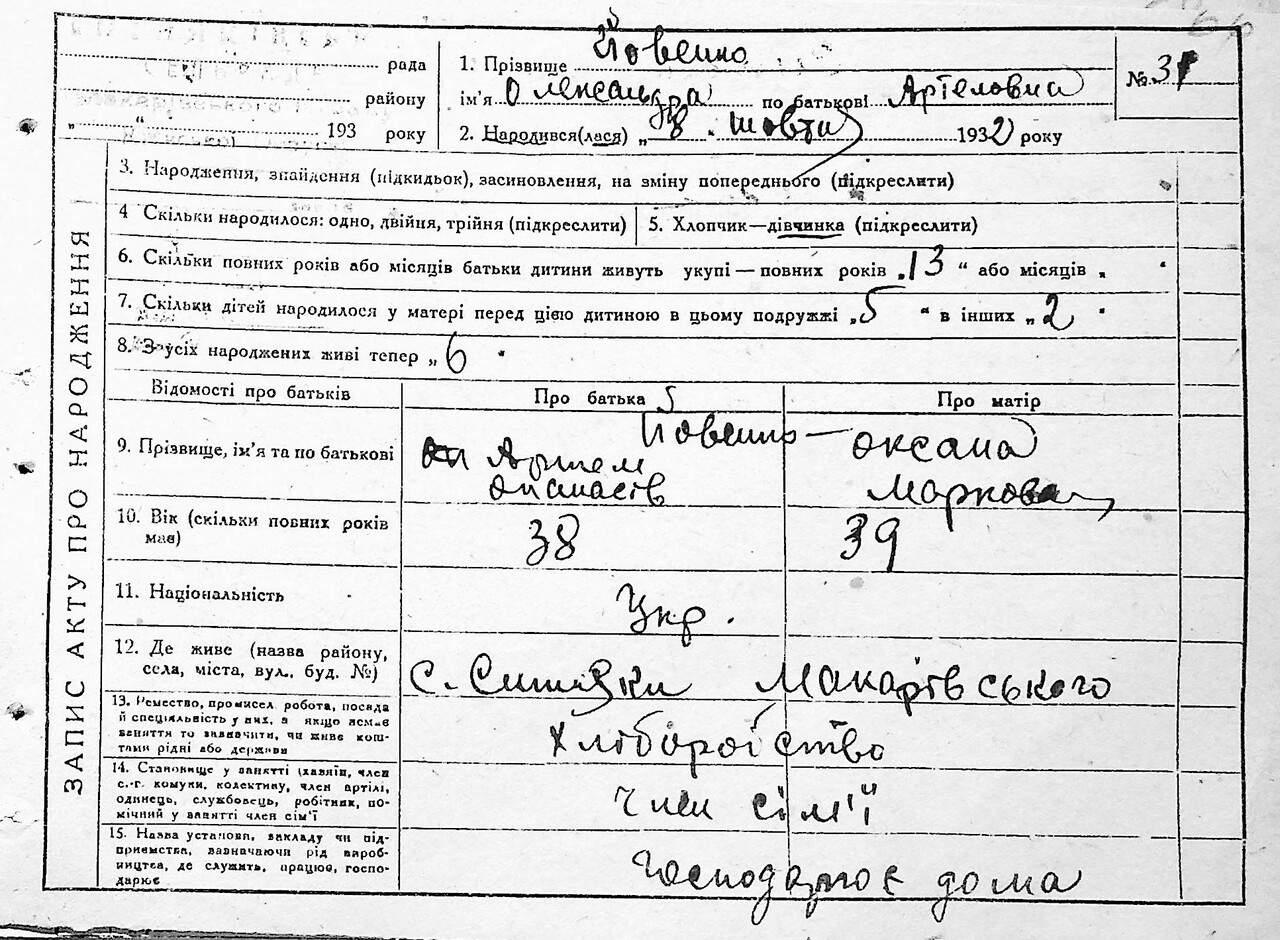 рада
району
„ “ 193 року
1. Прізвище Йовенко
ім'я Олександра по батькові Артемовна
2. Народився(лася) „8 " Жовтня 1932 року
№ 31
ЗАПИС АКТУ ПРО НАРОДЖЕННЯ
3. Народження, знайдення (підкидьок), засиновлення, на зміну попереднього (підкреслити)
4 Скільки народилося: одно, двійня, трійня (підкреслити)
5. Хлопчик—дівчинка (підкреслити)
6. Скільки повних років або місяців батьки дитини живуть укупі—повних років „13 “ або місяців „ “
7. Скільки дітей народилося у матері перед цією дитиною в цьому подружжі „5 “ в інших „2 “
8. З усіх народжених живі тепер „6 “
Відомості про батьків
Про батька
Про матір
9. Прізвище, ім'я та по батькові
Йовенко —
Артем
Опанасів
Оксана
Маркова
10. Вік (скільки повних років має)
38
39
11. Національність
Укр.
12. Де живе (назва району,
села, міста, вул., буд. №)
с. Ситняки Макарівського
13. Ремество, промисел, робота, посада
й спеціяльність у них, а якщо немає
заняття то визначити, чи живе кош-
тами рідні або держави
Хліборобство
14. Становище у занятті (хазяїн, член
с.-г. комуни, колективу, член артілі,
одинець, службовець, робітник, по-
мічний у занятті член сім'ї
член сім'ї
15. Назва установи, закладу чи під-
приємства, зазначаючи рід вироб-
ництва, де служить, працює, госпо-
дарює
Господарює дома